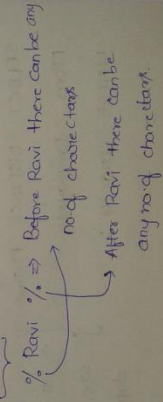 % Ravi % => Before Ravi there can be any
no. of charectars
After Ravi there can be
any no. of charectars.